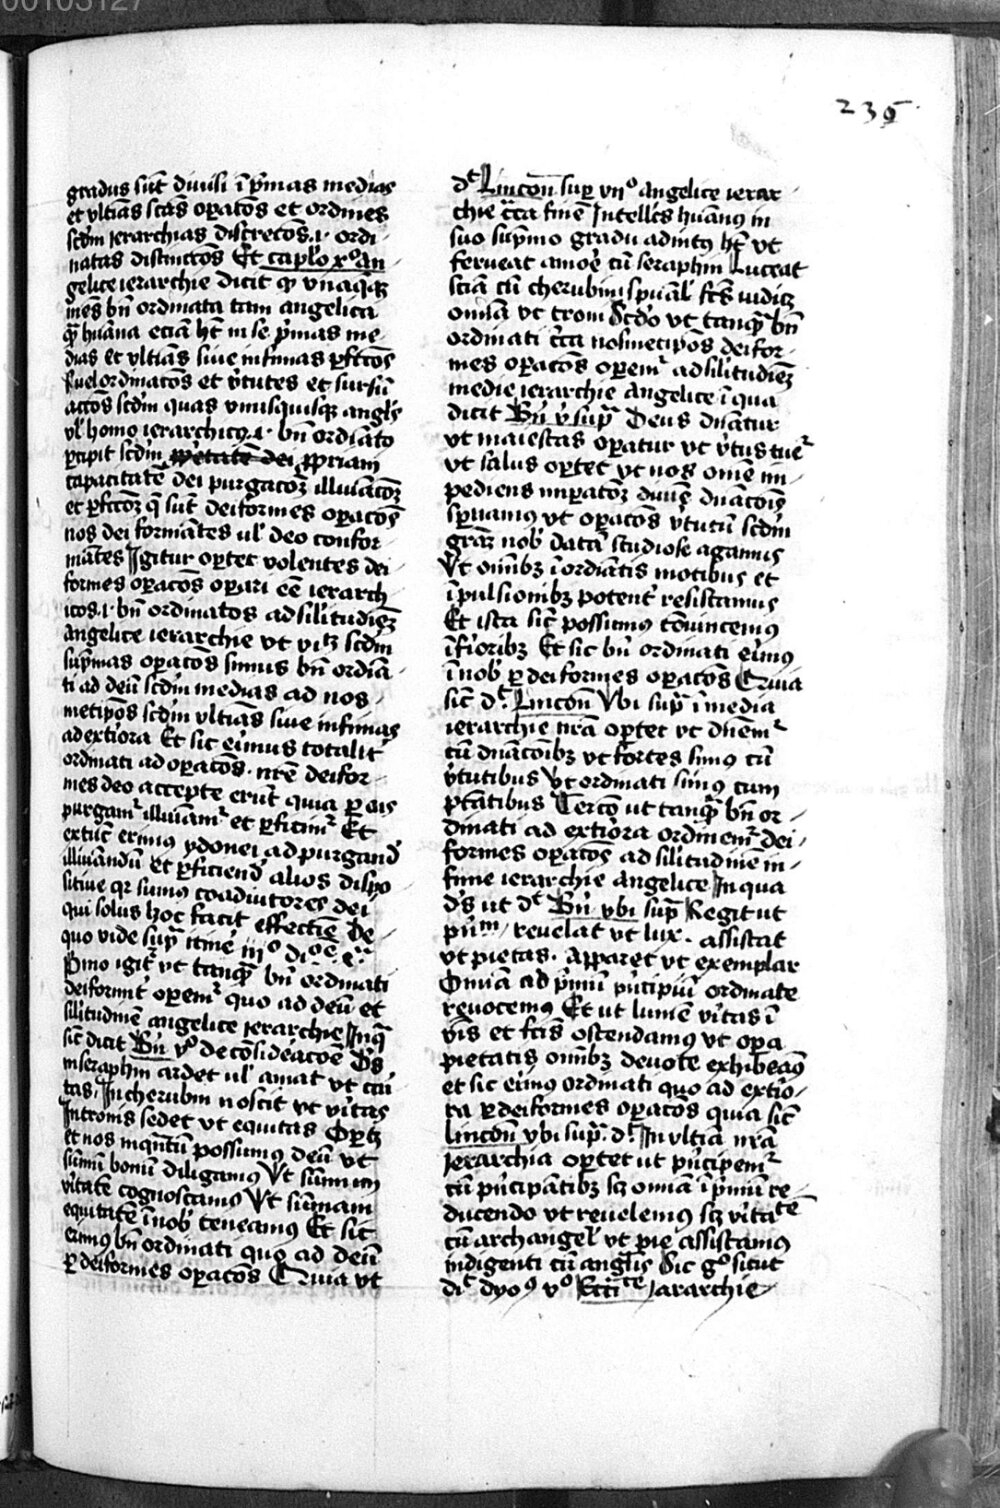 00103127
235
gradus sūt diuisi ī p̄mas medias
et vltīas scās oꝑatōs et ordines
scd̄m ierarchias discretōs .i. ordi
natas distinctōs Et caplo xº an
gelice ierarchie dicit ꝙ vnaqꝫ
mēs bn̄ ordinata tam angelica
ꝙ̄ huāna eciā hꝫ in se p̄mas me
dias et vltīas siue infimas ꝑfcōs
ordinatōs et v̓tutes et sursū
actōs scd̄m quas vnusquisqꝫ angl̓s
vl̓ homo ierarchicꝰ .i. bn̄ ordīato
ꝑticipit scd̄m dei ꝓpriam
capacitatē dei purgatoꝫ illuīatoꝫ
et ꝑfectoꝫ q̄ sūt deiformes oꝑatōs
nos dei formātes ul̓ deo confor
mātes Igitur oꝑtet volentes dei
formes oꝑatōs oꝑari eē ierarch
icos .i. bn̄ ordinatos ad sīlitudīeꝫ
angelice ierarchie vt vilꝫ scd̄m
sup̄mas oꝑatōs simus bn̄ ordīa
ti ad deū scd̄m medias ad nos
metip̄os scd̄m vltīas siue infimas
ad extiora Et sic eimus totalit̓
ordinati ad oꝑatōs . nr̄e deifor
mes deo accepte erūt quia ꝑ eis
purgam̓ illuīam̓ et ꝑficim̓ Et
extūc erimus ydonei ad purgand̓
illuīandū et ꝑficiend̓ alios dispo
sitiue qr sumus coadiutores dei
qui solus hoc facit effectiue De
quo vide sup̄ itinē iijº diºē c̓
P̄mo igit̓ vt tanqꝫ bn̄ ordinati
deiformit̓ oꝑem̓ quo ad deū et
sīlitudinē angelice ierarchie Inq̄
sic dicit Bn̄ vº de cōsideācoē Dˢ
in seraphin ardet ul̓ amat vt cari
tas . In cherubin noscit vt v̓itas
In tronis sedet vt equitas Oꝑtꝫ
et nos inqntū possumꝰ deū vt
sūmū bonū diligamꝰ Vt sūmam
v̓itatē cognoscamꝰ Vt sūmam
equitatē ī nob̓ teneamꝰ Et sic
eimꝰ bn̄ ordinati quo ad deū
ꝑ deiformes oꝑatōs Quia vt
dt̄ Lincon̄ sup vijº angelice ierar
chie c̄ca finē Intellc̄s huānꝰ in
suo sup̄mo gradu adiutꝰ hꝫ vt
ferueat amoē cū seraphin Luceat
sciā cū cherubim spūal̓ fc̄s iudicꝫ
omīa vt troni Scd̓o vt tanqꝫ bn̄
ordinati c̄ca nosmetip̄os deifor
mes oꝑatōs oꝑem̓ ad sīlitudīeꝫ
medie ierarchie angelice ī qua
dicit Bn̄ v̓ sup̄ Deus dn̄atur
vt maiestas oꝑatur vt v̓tus tue̓
vt salus oꝑtet vt nos omē im
pediens imꝑatoꝫ diuīe dn̄atōis
sp̄namus vt oꝑatōs v̓tutū scd̄m
gr̄aꝫ nob̓ datā studiose agamus
Vt omībꝫ īordīatis motibus et
īpulsionibꝫ potent̓ resistamus
Et ista sic̄ possumꝰ cōuincemꝰ
īf̓ioribꝫ Et sic bn̄ ordinati eimꝰ
ī nob̓ ꝑ deiformes oꝑatōs Quia
sic̄ dt̄ . Lincon̄ Vbi sup̄ ī media
ierarchie nr̄a oꝑtet vt dn̄em̓
cū dn̄acōibꝫ vt fortes simꝰ cū
v̓tutibus Vt ordinati simꝰ cum
ptātibus Tercō ut tanqꝫ bn̄ or
dinati ad extiōra ordinem̓ dei
formes oꝑatōs ad sīlitudinē in
fime ierarchie angelice In qua
dˢ ut dt̄ Bn̄ vbi sup̄ Regit ut
pn̄m̄ , reuelat vt lux . assistat
vt pietas . apparet vt exemplar
Omīa ad p̄mū p̓ncipiū ordinate
reuocemꝰ Et ut lumē v̓itas ī
v̓bis et fc̄is ostendamus vt opa
pietatis omībꝫ deuote exhibeāꝰ
et sic eimꝰ ordinati quo ad extio
ra ꝑ deiformes oꝑatōs quia sic̄
lincon̄ vbi sup̄ . dt̄ In vltīa nr̄a
Jerarchia oꝑtet ut p̓ncipem̓
cū p̓ncipātibꝫ scꝫ omīa ī p̓mū re
ducendo vt reuelemꝰ scꝫ v̓itatē
cū archangel̓ vt pie assistamꝰ
indigenti cū angl̓is Sic gº sicut
dīc̄ dyoꝰ vº Ecc̄ītē Jararchie